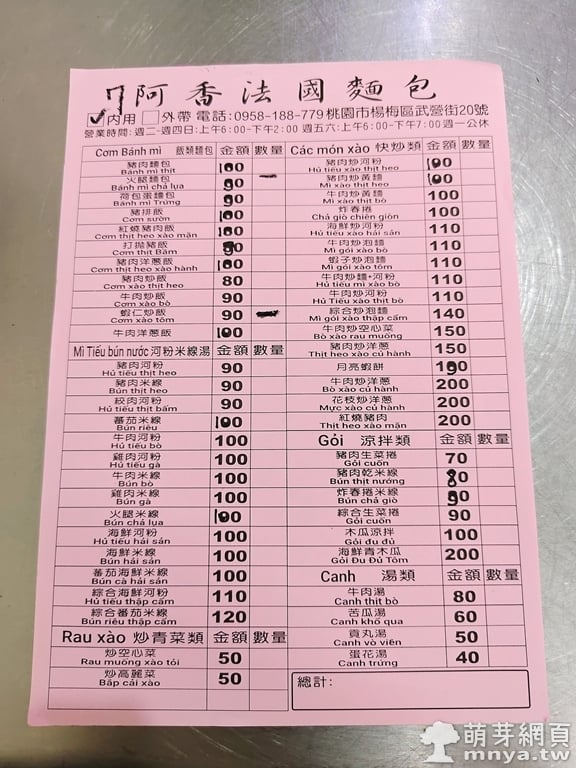 阿香法國麵包
內用 外帶 電話:0958-188-779桃園市楊梅區武營街20號
營業時間:週二-週四日:上午6:00-下午2:00 週五六:上午6:00-下午7:00週一公休
Cơm Bánh mì 飯類麵包 金額 數量
豬肉麵包 100
Bánh mì thịt
火腿麵包 90
Bánh mì chả lụa
荷包蛋麵包 90
Bánh mì Trưng
豬排飯 100
Cơm sườn
紅燒豬肉飯 100
Cơm thịt heo xào mặn
打拋豬飯 90
Cơm thịt Bằm
豬肉洋蔥飯 100
Cơm thịt heo xào hành
豬肉炒飯 80
Cơm xào thịt heo
牛肉炒飯 90
Cơm xào bò
蝦仁炒飯 90
Cơm xào tôm
牛肉洋蔥飯 100
Mì Tiếu bún nước 河粉米線湯 金額 數量
豬肉河粉 90
Hủ tiếu thịt heo
豬肉米線 90
Bún thịt heo
絞肉河粉 90
Hủ tiếu thịt bấm
番茄米線 100
Bún riêu
牛肉河粉 100
Hủ tiếu bò
雞肉河粉 100
Hủ tiếu gà
牛肉米線 100
Bún bò
雞肉米線 100
Bún gà
火腿米線 100
Bún chả lụa
海鮮河粉 100
Hủ tiếu hải sản
海鮮米線 100
Bún hải sản
番茄海鮮米線 100
Bún cà hải sản
綜合海鮮河粉 110
Hủ tiếu thập cẩm
綜合番茄米線 120
Bún riêu thập cẩm
Rau xào 炒青菜類 金額 數量
炒空心菜 50
Rau muống xào tỏi
炒高麗菜 50
Bắp cải xào
Các món xào 快炒類 金額 數量
豬肉炒河粉 100
Hủ tiếu xào thịt heo
豬肉炒黃麵 100
Mì xào thịt heo
牛肉炒黃麵 100
Mì xào thịt bò
炸春捲 100
Chả giò chiên giòn
海鮮炒河粉 110
Hủ tiếu xào hải sản
牛肉炒泡麵 110
Mì gói xào thịt bò
蝦子炒泡麵 110
Mì gói xào tôm
牛肉炒麵+河粉 110
Hủ tiếu mì xào bò
牛肉炒河粉 110
Hủ Tiếu xào thịt bò
綜合炒泡麵 140
Mì gói xào thập cẩm
牛肉炒空心菜 150
Bò xào rau muống
豬肉炒洋蔥 150
Thịt heo xào củ hành
月亮蝦餅 190
牛肉炒洋蔥 200
Bò xào củ hành
花枝炒洋蔥 200
Mực xào củ hành
紅燒豬肉 200
Thịt heo xào mặn
Gỏi 涼拌類 金額 數量
豬肉生菜捲 70
Gỏi cuốn
豬肉乾米線 80
Bún thịt nướng
炸春捲米線 90
Bún chả giò
綜合生菜捲 90
Gỏi cuốn
木瓜涼拌 100
Gỏi đu đủ
海鮮青木瓜 200
Gỏi Đu Đủ Tôm
Canh 湯類 金額 數量
牛肉湯 80
Canh thịt bò
苦瓜湯 60
Canh khổ qua
貢丸湯 50
Canh vò viên
蛋花湯 40
Canh trứng
總計:
萌芽網頁
mnya.tw